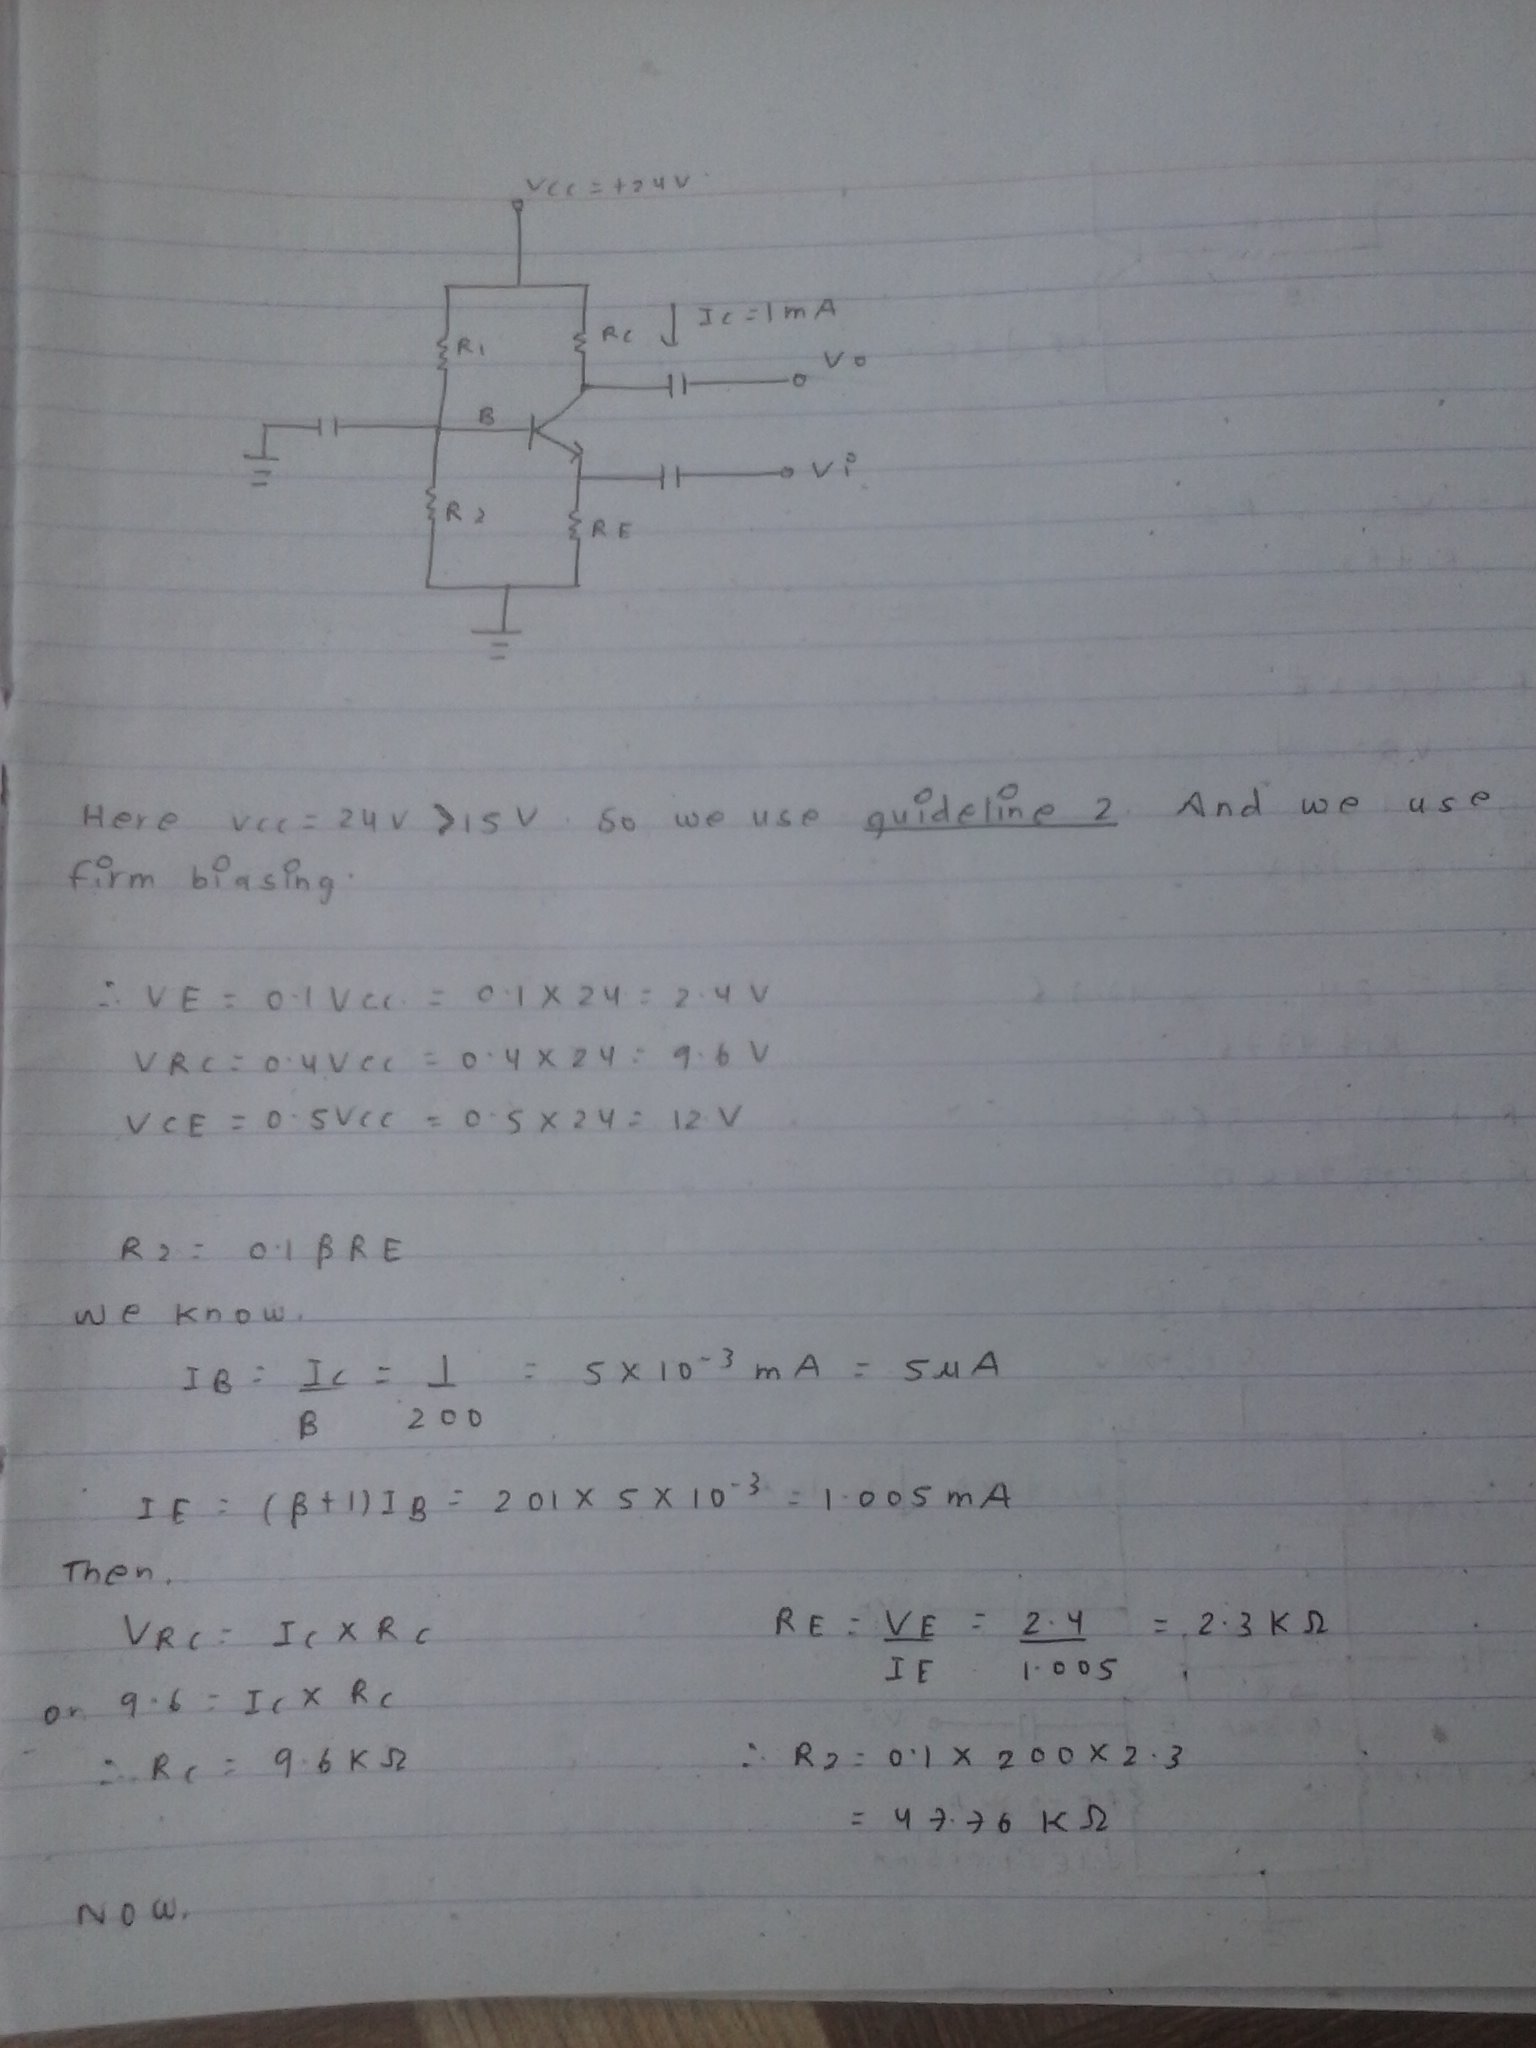 Vcc = +24V
R1
Rc
Ic = 1mA
Vo
B
Vi
R2
RE
Here Vcc = 24V > 15V. So we use guideline 2. And we use
firm biasing.
∴ VE = 0.1Vcc = 0.1 X 24 = 2.4 V
VRC = 0.4Vcc = 0.4 X 24 = 9.6 V
VCE = 0.5Vcc = 0.5 X 24 = 12 V
R2 = 0.1 β RE
We know.
IB = Ic/β = 1/200 = 5 X 10⁻³ mA = 5μA
IE = (β+1)IB = 201 X 5 X 10⁻³ = 1.005 mA
Then,
VRC = Ic X Rc
or 9.6 = Ic X Rc
∴ Rc = 9.6 KΩ
RE = VE/IE = 2.4/1.005 = 2.3 KΩ
∴ R2 = 0.1 X 200 X 2.3
= 47.76 KΩ
NOW,